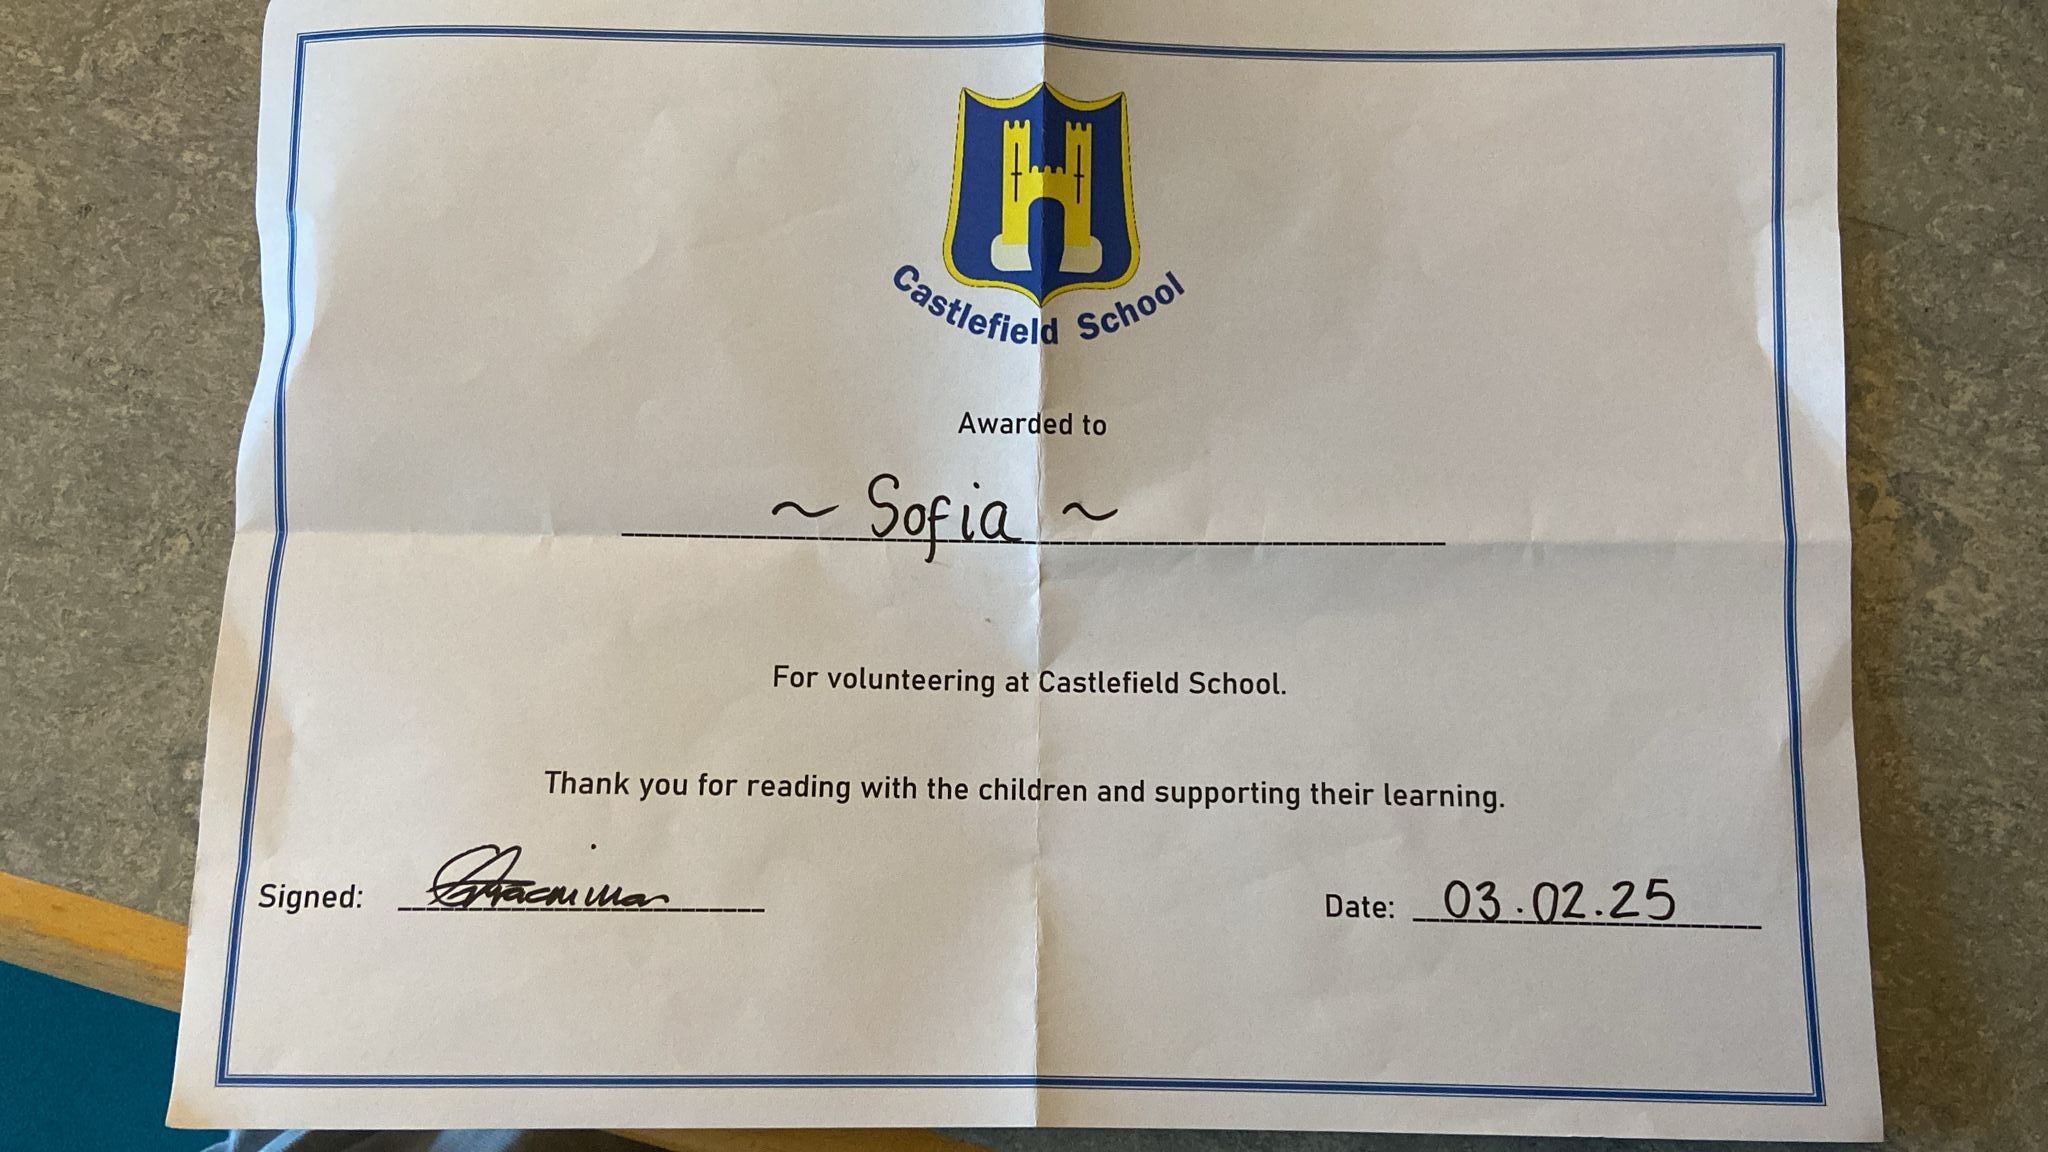 Castlefield School
Awarded to
~ Sofia ~
For volunteering at Castlefield School.
Thank you for reading with the children and supporting their learning.
Signed:
Date: 03.02.25